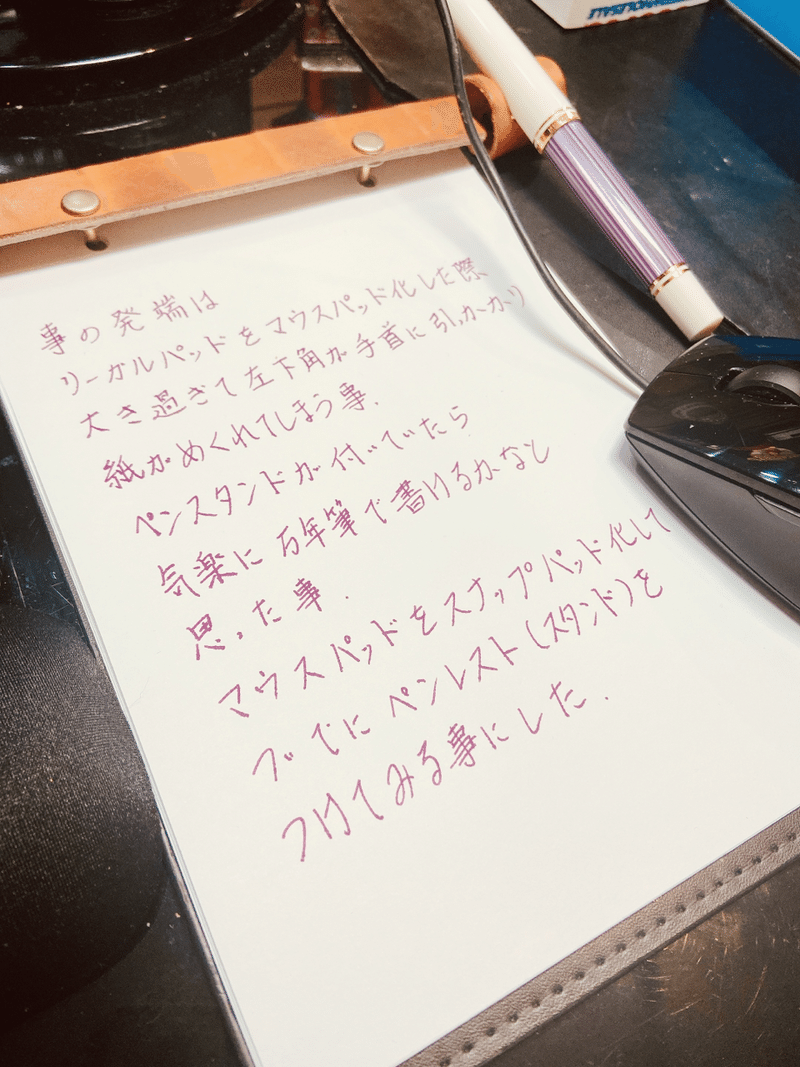 事の発端は
リーガルパッドをマウスパッド化した際、
大き過ぎて左下角が手首に引っかかり
紙がめくれてしまう事.
ペンスタンドが付いていたら
気楽に万年筆で書けるかなと
思った事.
マウスパッドをスナップパッド化して
ついでにペンレスト(スタンド)を
つけてみる事にした.